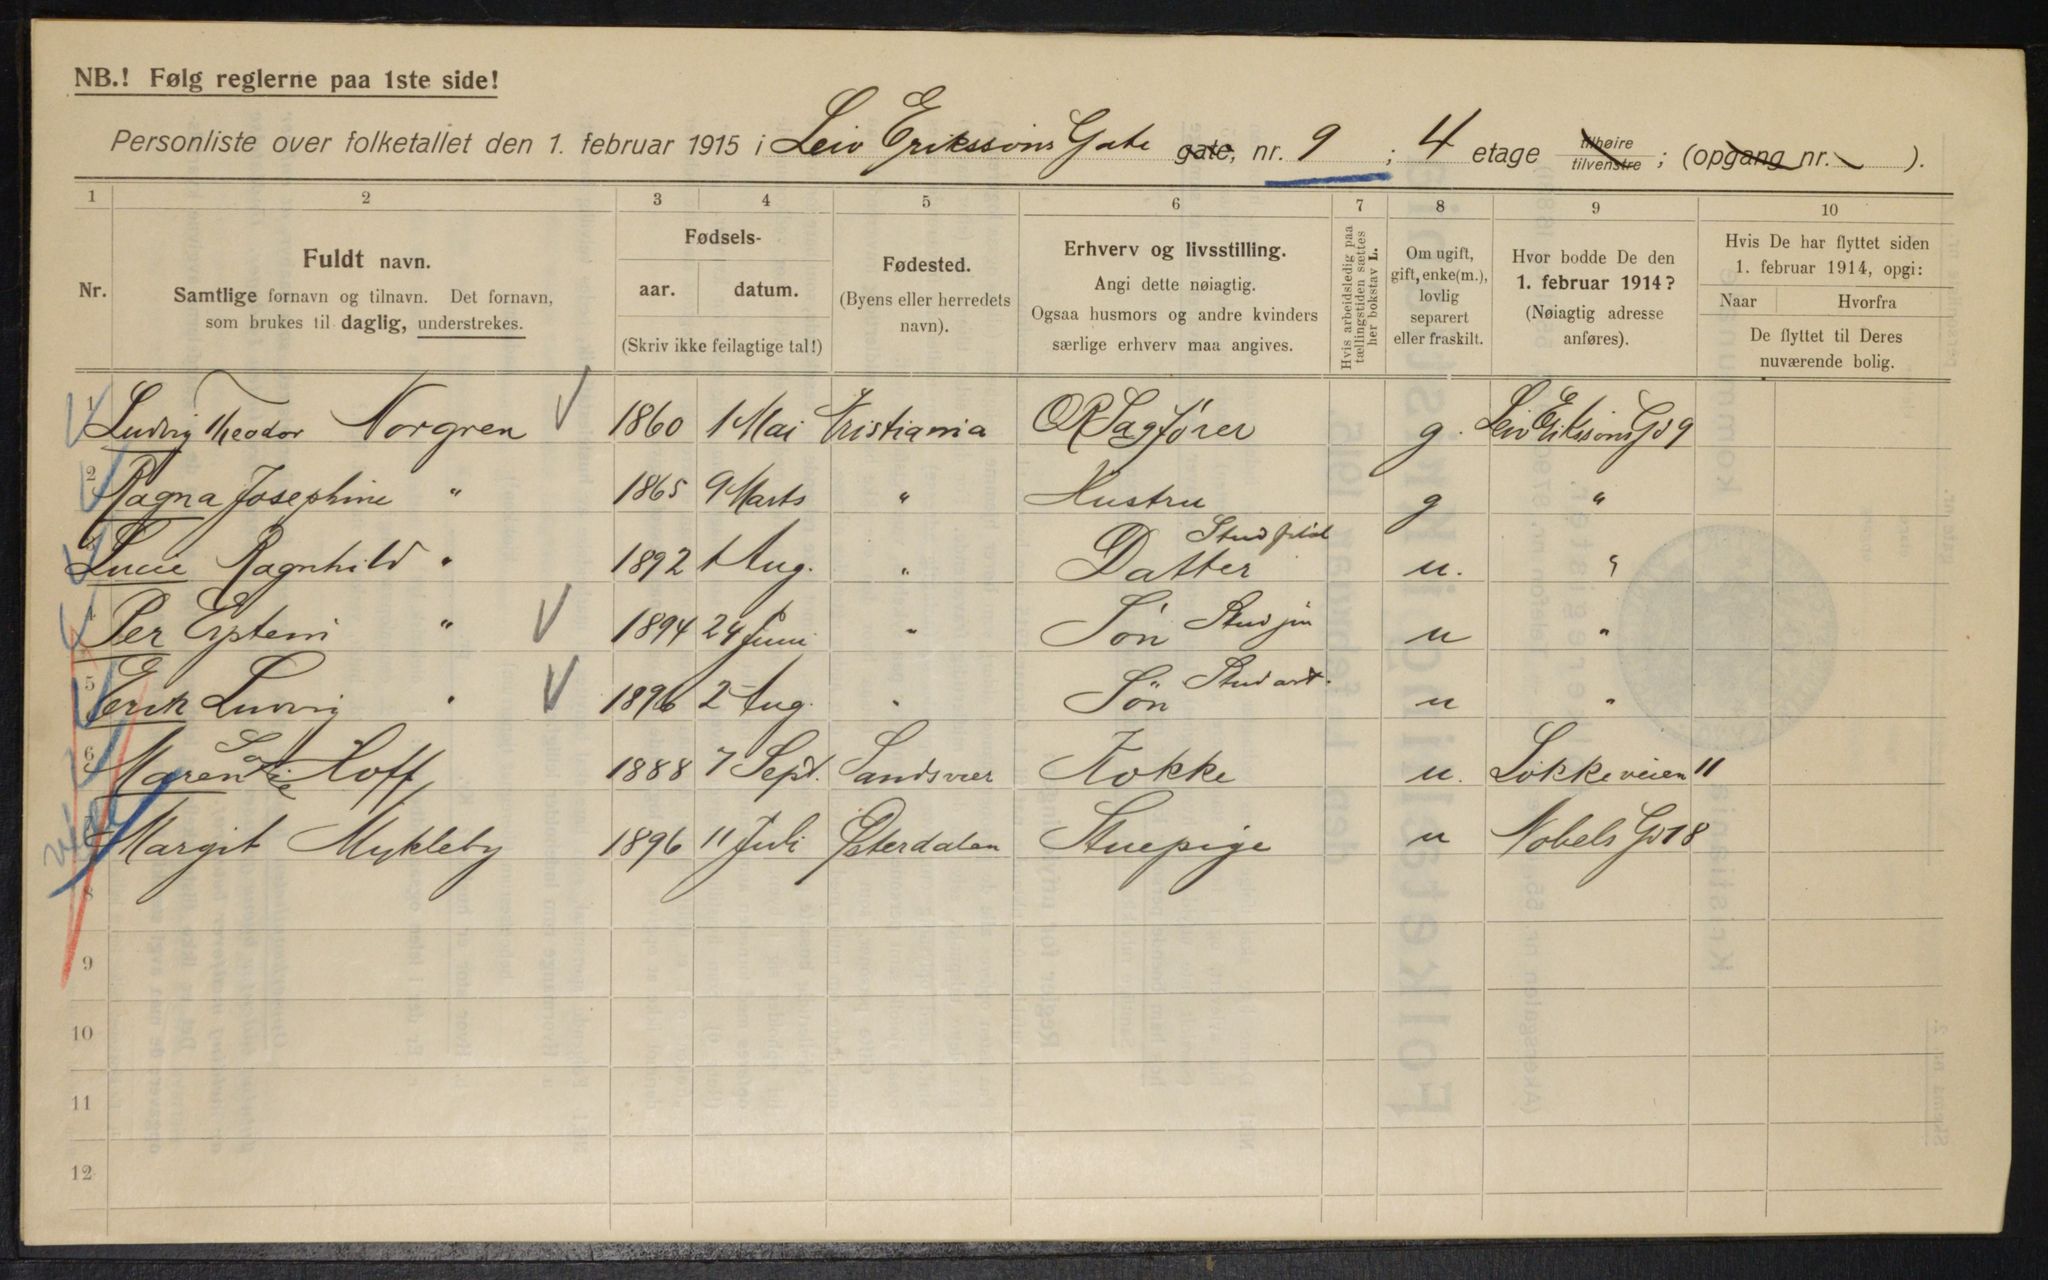 NB.! Følg reglerne paa 1ste side!
Personliste over folketallet den 1. februar 1915 i Leiv Erikssons Gate gate, nr. 9 ; 4 etage tilhøire tilvenstre ; (opgang nr. ).
1 2 3 4 5 6 7 8 9 10
Nr.
Fuldt navn.
Samtlige fornavn og tilnavn. Det fornavn,
som brukes til daglig, understrekes.
Fødsels-
aar. datum.
(Skriv ikke feilagtige tal!)
Fødested.
(Byens eller herredets
navn).
Erhverv og livsstilling.
Angi dette nøiagtig.
Ogsaa husmors og andre kvinders
særlige erhverv maa angives.
Hvis arbeidsledig paa
tællingstiden sættes
her bokstav L.
Om ugift,
gift, enke(m.),
lovlig
separert
eller fraskilt.
Hvor bodde De den
1. februar 1914?
(Nøiagtig adresse
anføres).
Hvis De har flyttet siden
1. februar 1914, opgi:
Naar Hvorfra
De flyttet til Deres
nuværende bolig.
1 Ludvig Theodor Norgren 1860 1 Mai Kristiania OR Sagfører g. Leiv Erikssons Gd 9
2 Ragna Josephine " 1865 9 Marts " Hustru g "
3 Lucie Ragnhild " 1892 1 Aug. " Datter Stud filol u. "
4 Per Eystein " 1894 24 Juni " Søn Stud jur u "
5 Erik Ludvig " 1896 2 Aug. " Søn Stud art. u "
6 Maren Sofie Hoff 1888 7 Sept. Sandsvær Kokke u. Løkkeveien 11
7 Margit Mykleby 1896 11 Juli Østerdalen Stuepige u Nobels Gd 18
8
9
10
11
12